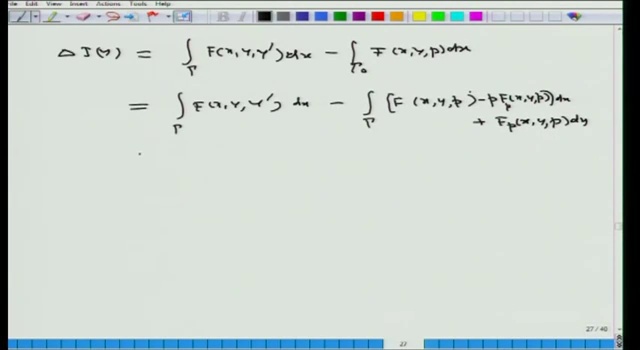 File Edit View Insert Actions Tools Help
Δ J(y) = ∫_Γ F(x, y, y') dx − ∫_Γ₀ F(x, y, p) dx
= ∫_Γ F(x, y, y') dx − ∫_Γ [F(x, y, p) − p F_p(x, y, p)] dx
+ F_p(x, y, p) dy
27 / 40
27